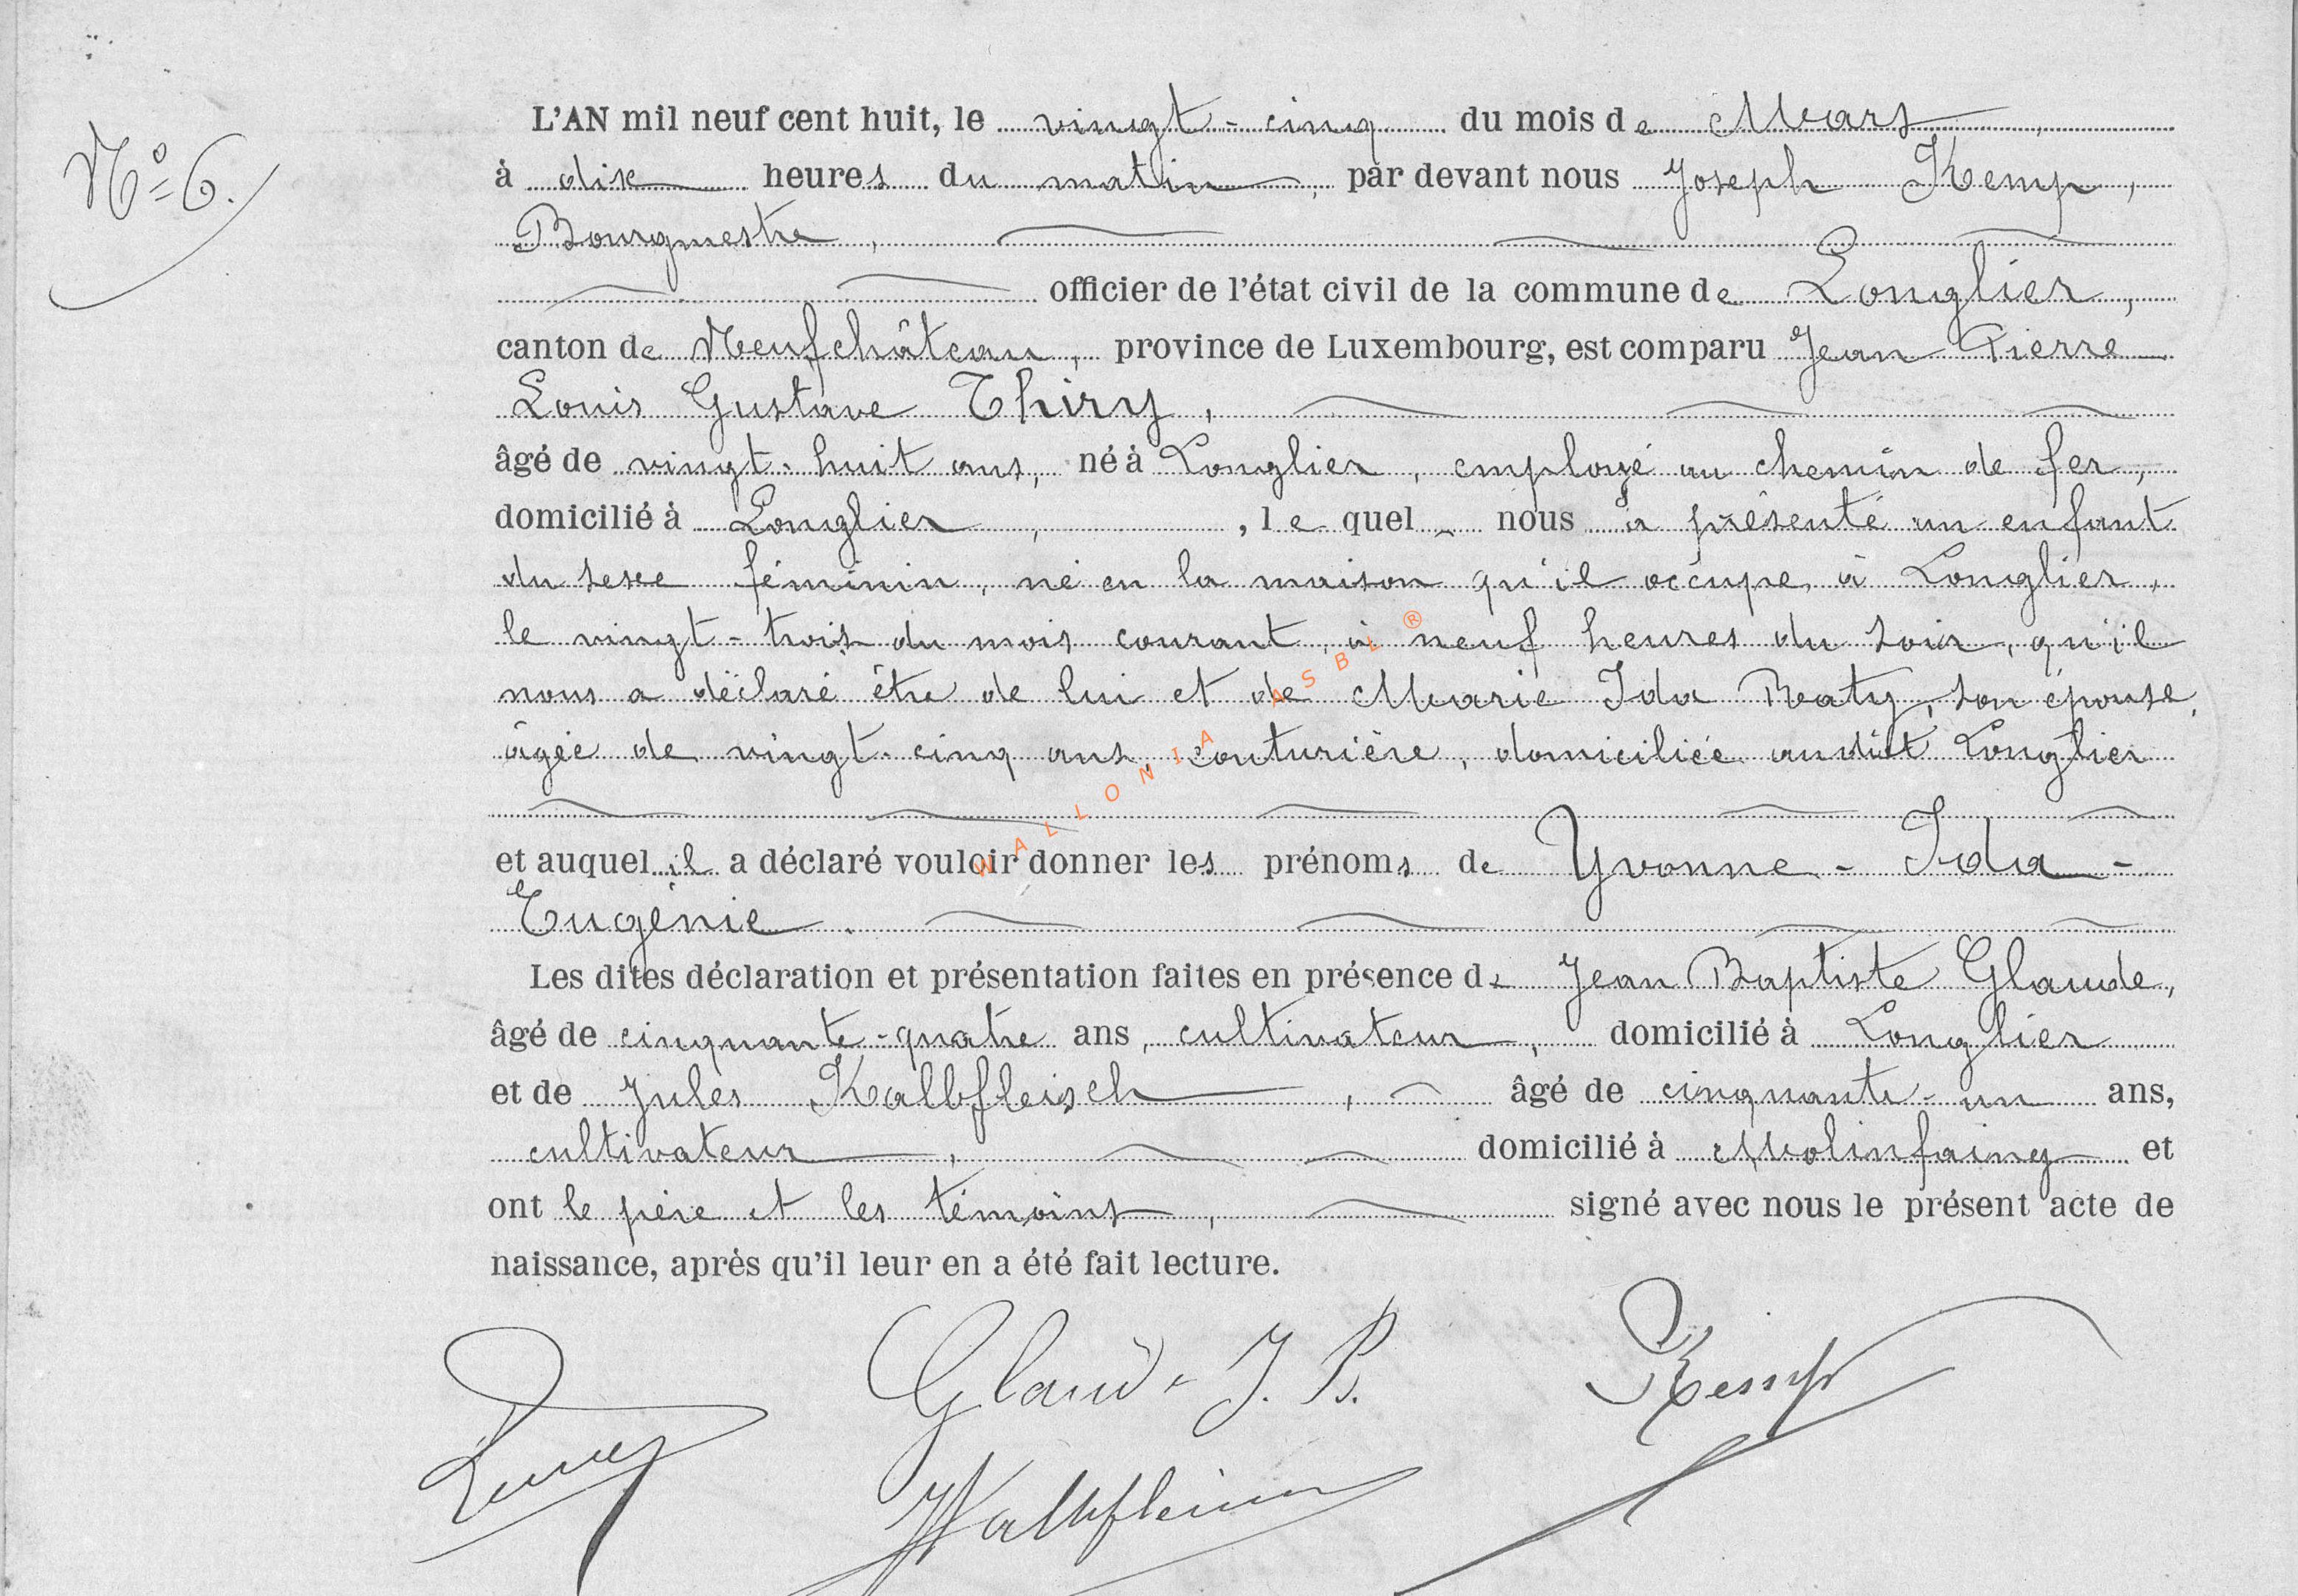 N° 6.
L'AN mil neuf cent huit, le vingt-cinq du mois de Mars,
à dix heures du matin, par devant nous Joseph Kemp,
Bourgmestre,
officier de l'état civil de la commune de Longlier,
canton de Neufchâteau, province de Luxembourg, est comparu Jean Pierre
Louis Gustave Thiry,
âgé de vingt-huit ans, né à Longlier, employé au chemin de fer,
domicilié à Longlier, , le quel nous a présenté un enfant
du sexe féminin, né en la maison qu'il occupe à Longlier,
le vingt-trois du mois courant, à neuf heures du soir, qu'il
nous a déclaré être de lui et de Marie Ida Baty, son épouse,
âgée de vingt-cinq ans, couturière, domiciliée audit Longlier
et auquel il a déclaré vouloir donner les prénoms de Yvonne-Ida-
Eugénie.
Les dites déclaration et présentation faites en présence de Jean Baptiste Glaude,
âgé de cinquante-quatre ans, cultivateur, domicilié à Longlier
et de Jules Kalbfleisch, âgé de cinquante-un ans,
cultivateur, domicilié à Molinfaing et
ont le père et les témoins, signé avec nous le présent acte de
naissance, après qu'il leur en a été fait lecture.
Glaude J. B. Kemp
WALLONIA ASBL ®